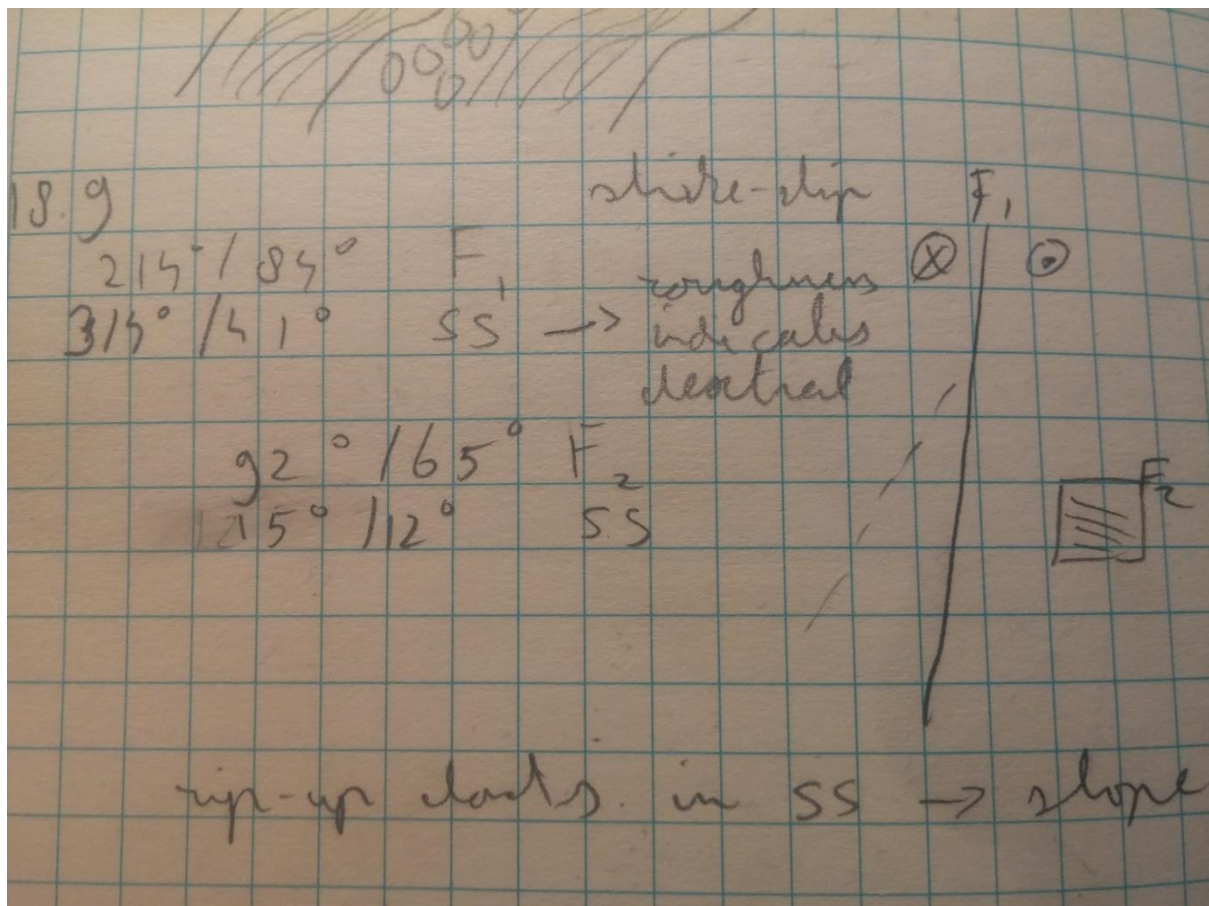 18.9
strike-slip F₁
214° / 84° F₁ roughness ⊗ ⊙
314° / 41° SS → indicates
dextral
92° /65° F₂
15° /12° SS
F₂
rip-up clasts in SS → slope